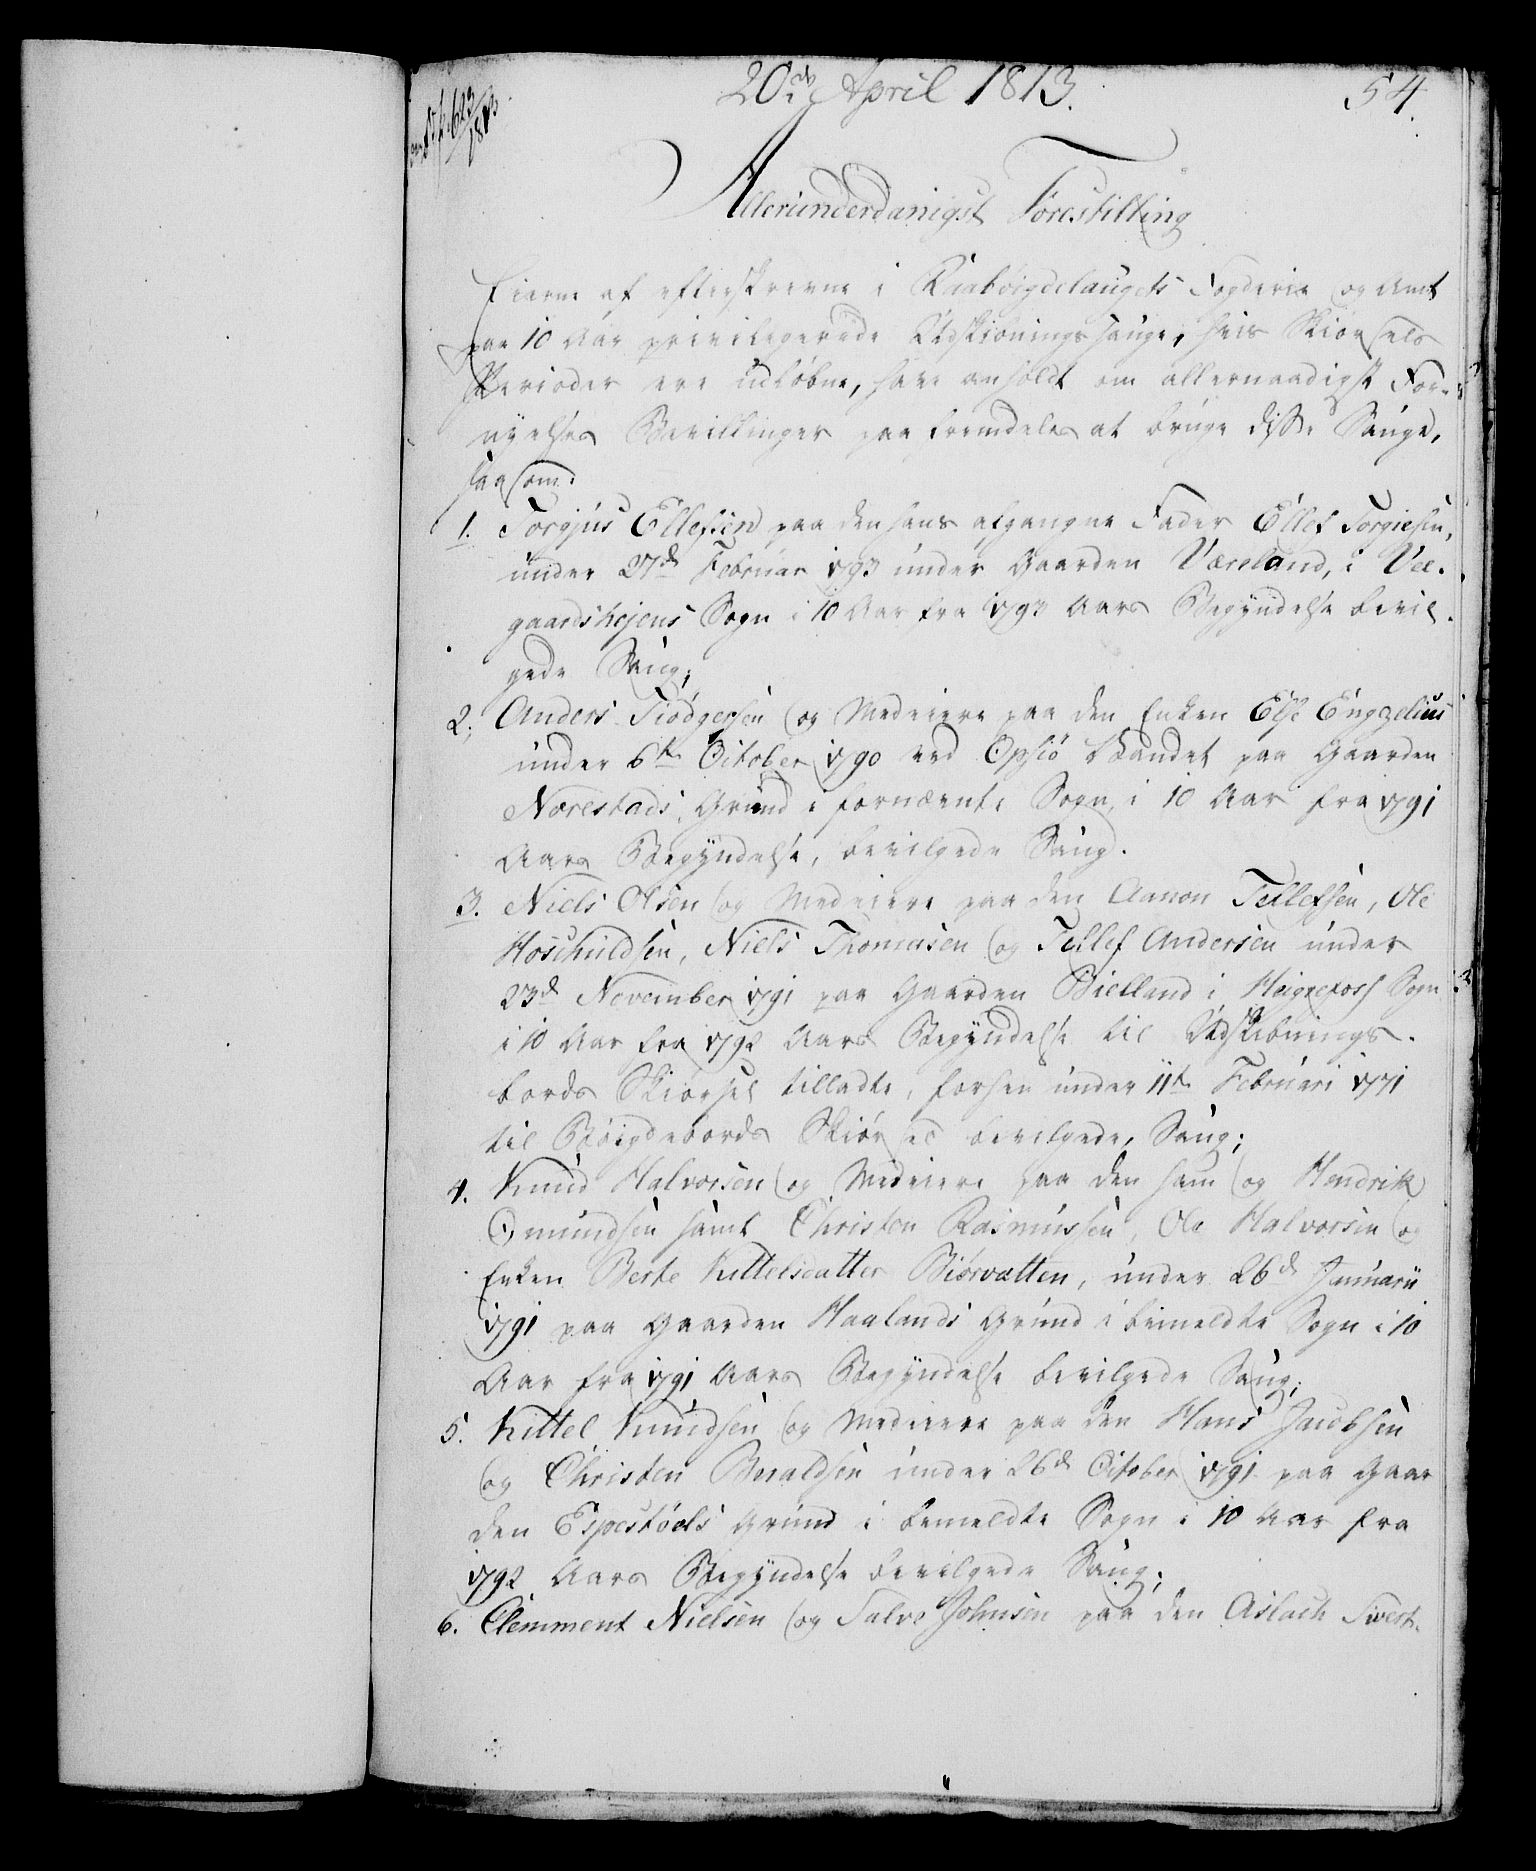 20de April 1813.
54.
623/1813
Allerunderdanigst Forestilling
Eierne af efterskrevne i Raabøigdelaugets Fogderie og Amt
paa 10 Aar privilegerede Udskibningssauge, hvis Skiørsels
Perioder ere udløbne, have anholdt om allernaadigst For-
nyelses Bevillinger paa fremdeles at bruge disse Sauge,
saasom:
1. Torgjus Ellefsen paa den hans afgangne Fader Ellef Torgiesen,
under 27de Februar 1793 under Gaarden Væreland, i Vee-
gaardshejens Sogn i 10 Aar fra 1793 Aars Begyndelse bevil-
gede Saug;
2. Anders Tiødgersen og Medeiere paa den Enken Else Engzelius
under 6te October 1790 ved Opsiø Vandet paa Gaarden
Norestads Grund i fornævnte Sogn, i 10 Aar fra 1791
Aars Begyndelse, bevilgede Saug.
3. Niels Olsen og Medeiere paa den Aanon Tellefsen, Ole
Hoschuldsen, Niels Thomasen og Tellef Andersen under
23de November 1791 paa Gaarden Bielland i Heigrefoss Sogn
i 10 Aar fra 1792 Aars Begyndelse til Udskibnings-
bords Skiørsel tilladte, forhen under 11te Februari 1771
til Bøigdebords Skiørsel bevilgede, Saug;
4. Knud Halvorsen og Medeiere paa den ham og Hendrik
Omundsen samt Christen Rasmussen, Ole Halvorsen og
Enken Berte Kittelsdatter Biørvatten, under 26de Januarii
1791 paa Gaarden Haalands Grund i bemeldte Sogn i 10
Aar fra 1791 Aars Begyndelse bevilgede Saug;
5. Kittel Knudsen og Medeiere paa den Hans Jacobsen
og Christen Beraldsen under 26de October 1791 paa Gaar
den Espestøels Grund i bemeldte Sogn i 10 Aar fra
1792 Aars Begyndelse bevilgede Saug;
6. Clemment Nielsen og Salve Johnsen paa den Aslach Sivert-